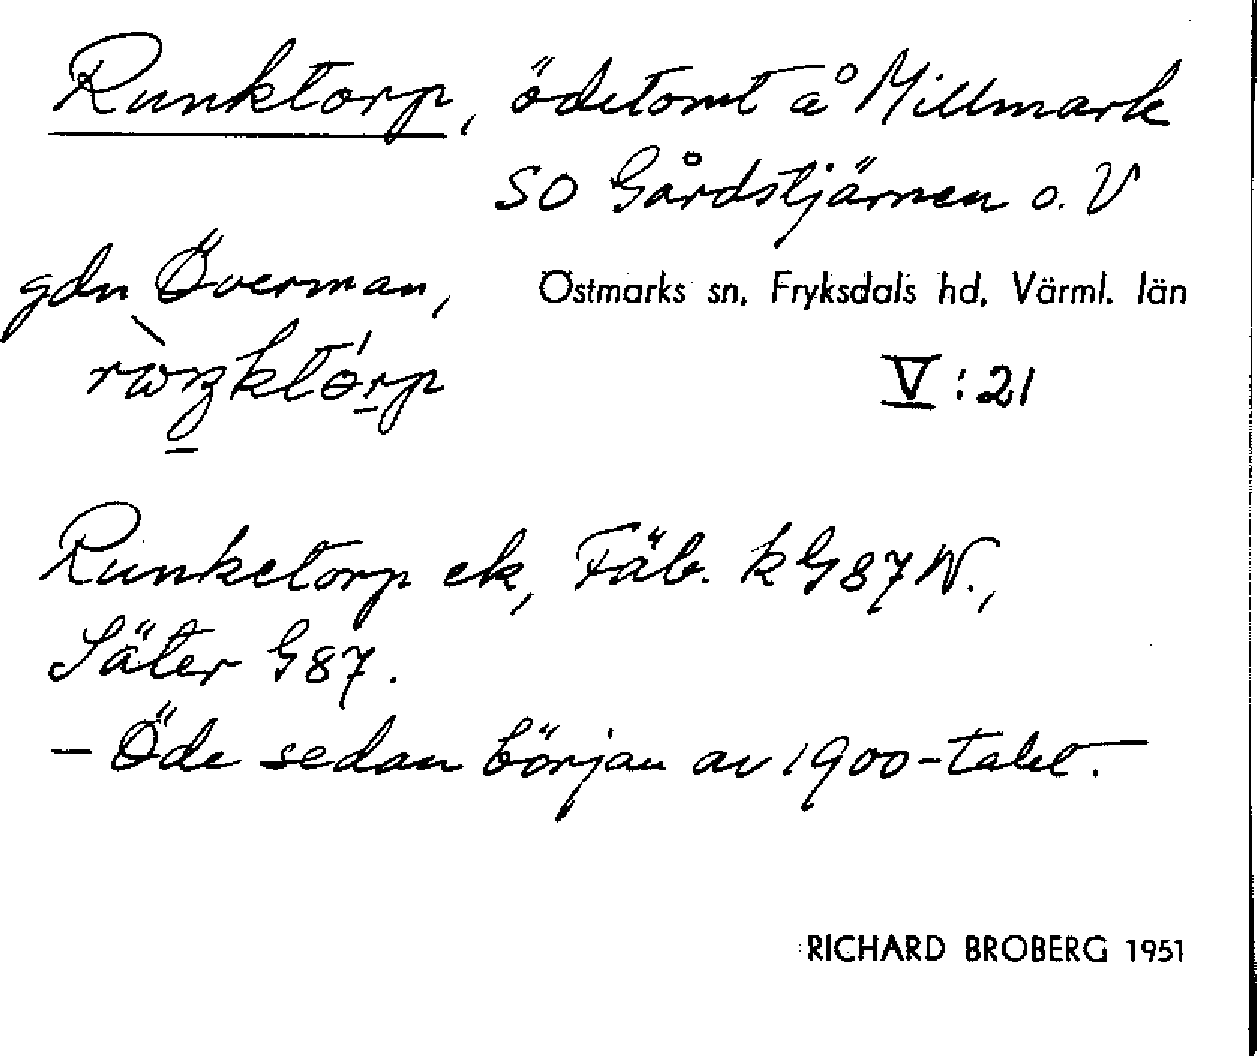 Runktorp, ödetomt å Millmark
SO Gårdstjärnen o. V
gdn Överman,
Östmarks sn, Fryksdals hd, Värml. län
V:21
Runketorp ek, Fäb. k G87N.,
Säter G87.
– Öde sedan början av 1900-talet.
RICHARD BROBERG 1951